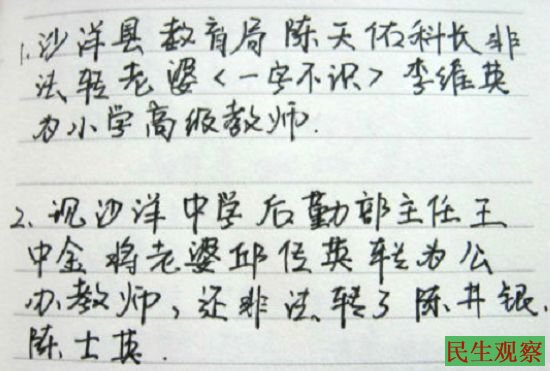 1.沙洋县教育局陈天佑科长非
法转老婆<一字不识>李维英
为小学高级教师.
2、现沙洋中学后勤部主任王
中金将老婆邱传英转为公
办教师,还非法转了陈井银.
陈士英.
民生观察